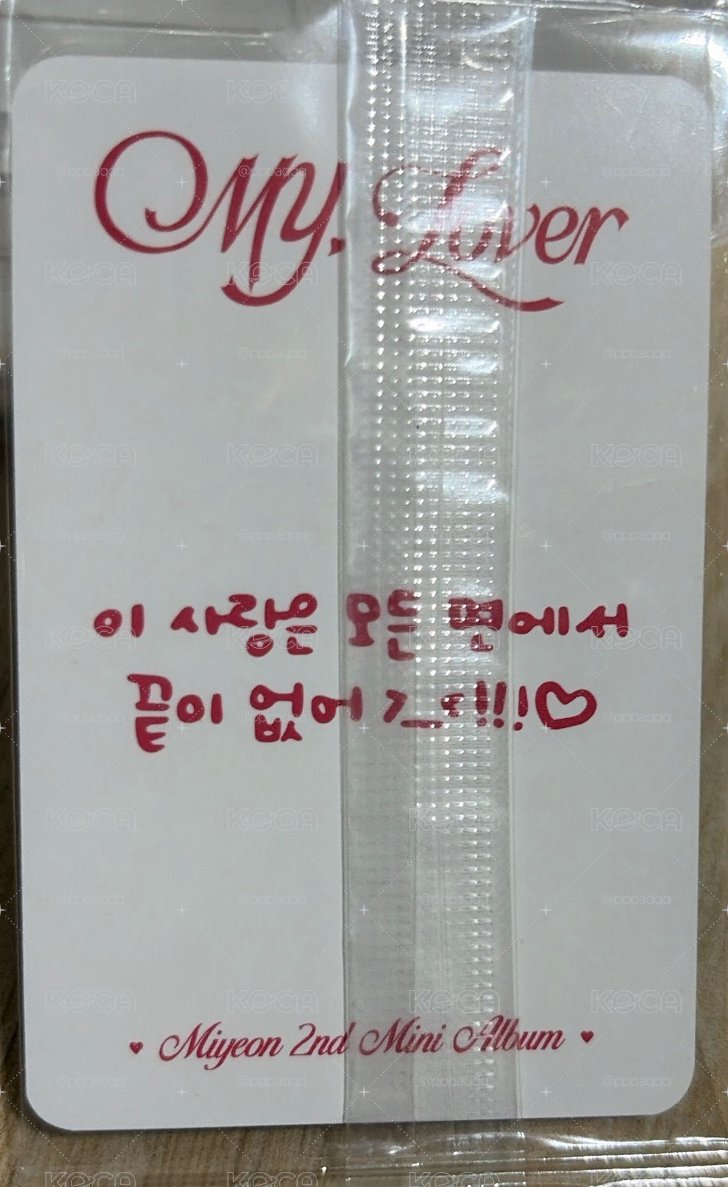 My, Lover
이 사랑은 모든 면에서
끝이 없어 !!!♡
♥ Miyeon 2nd Mini Album ♥